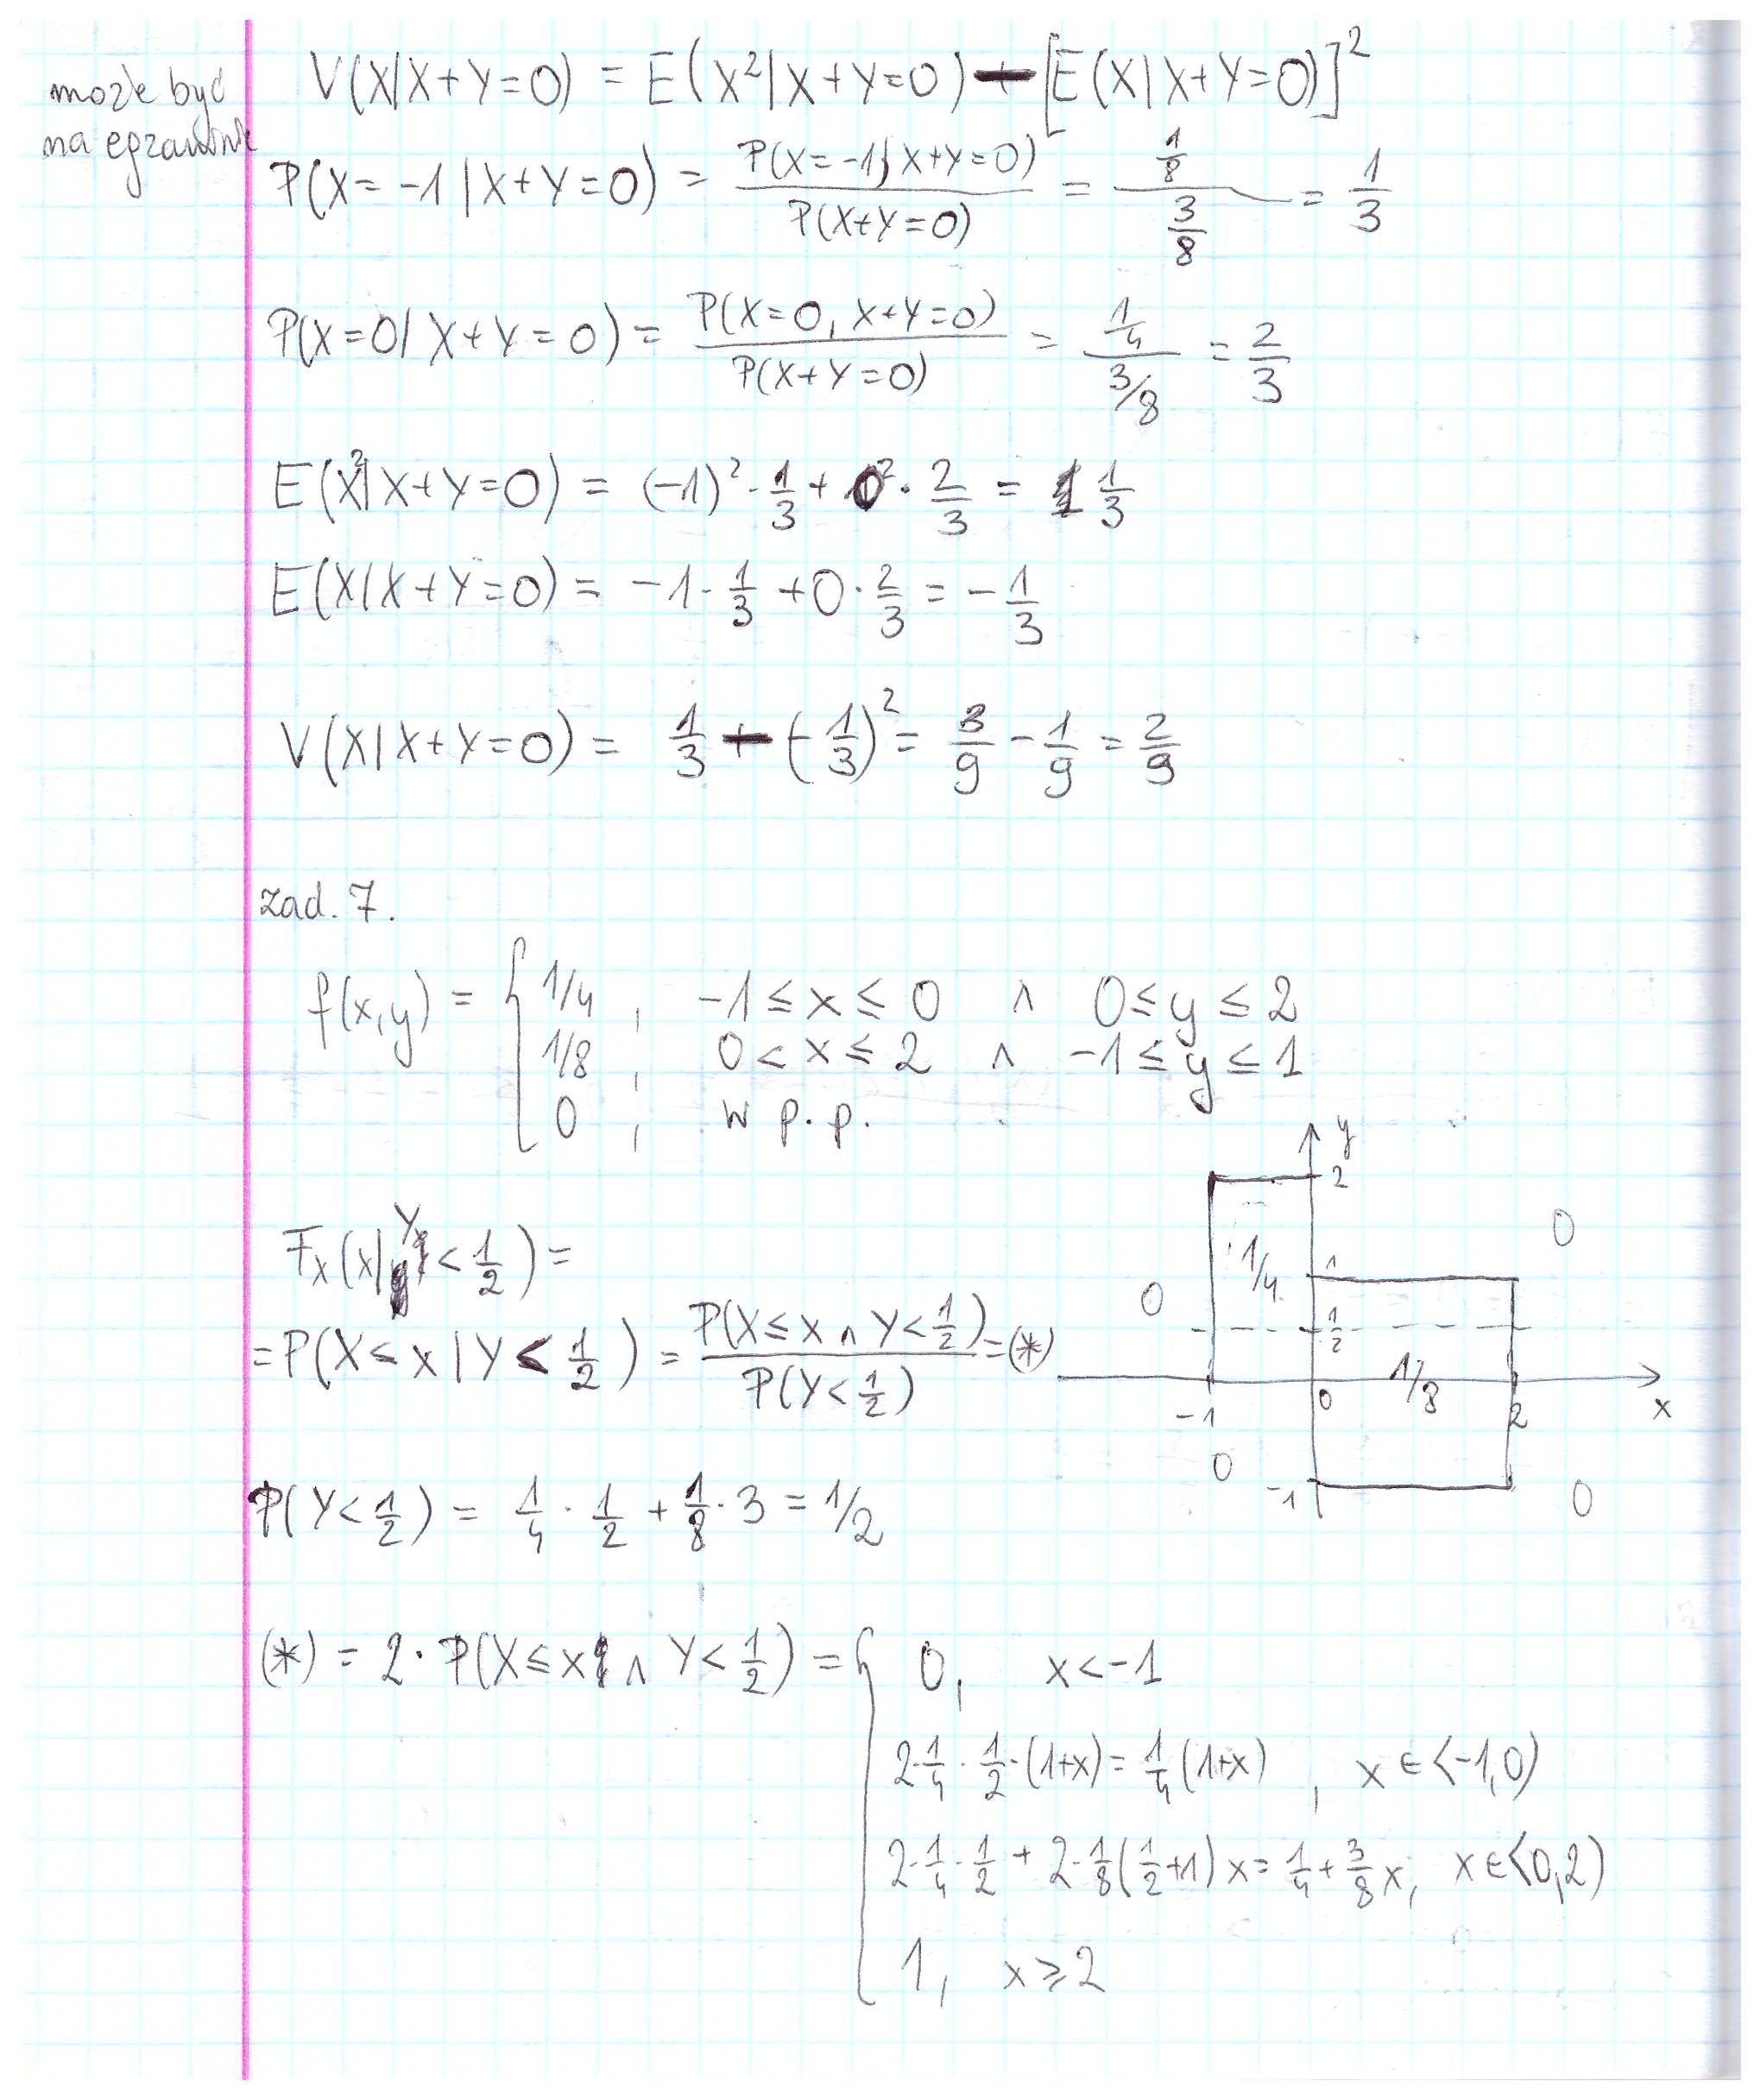 może być
na egzaminie
V(X|X+Y=0) = E(X²|X+Y=0) - [E(X|X+Y=0)]²
P(X=-1|X+Y=0) = P(X=-1, X+Y=0) / P(X+Y=0) = 1/8 / 3/8 = 1/3
P(X=0|X+Y=0) = P(X=0, X+Y=0) / P(X+Y=0) = 1/4 / 3/8 = 2/3
E(X²|X+Y=0) = (-1)² · 1/3 + 0² · 2/3 = 1/3
E(X|X+Y=0) = -1 · 1/3 + 0 · 2/3 = -1/3
V(X|X+Y=0) = 1/3 - (-1/3)² = 3/9 - 1/9 = 2/9
zad. 7.
f(x,y) = { 1/4 , -1 ≤ x ≤ 0 ∧ 0 ≤ y ≤ 2
1/8 , 0 < x ≤ 2 ∧ -1 ≤ y ≤ 1
0 , w p.p.
y
2
0
1/4
1
0
1/2
1/8
-1
0
2
x
0
-1
0
F_X(x|Y < 1/2) =
= P(X ≤ x | Y < 1/2) = P(X ≤ x ∧ Y < 1/2) / P(Y < 1/2) = (*)
P(Y < 1/2) = 1/4 · 1/2 + 1/8 · 3 = 1/2
(*) = 2 · P(X ≤ x ∧ Y < 1/2) = { 0, x < -1
2 · 1/4 · 1/2 · (1+x) = 1/4 (1+x) , x ∈ <-1,0)
2 · 1/4 · 1/2 + 2 · 1/8 (1/2 + 1) x = 1/4 + 3/8 x, x ∈ <0,2)
1, x ≥ 2